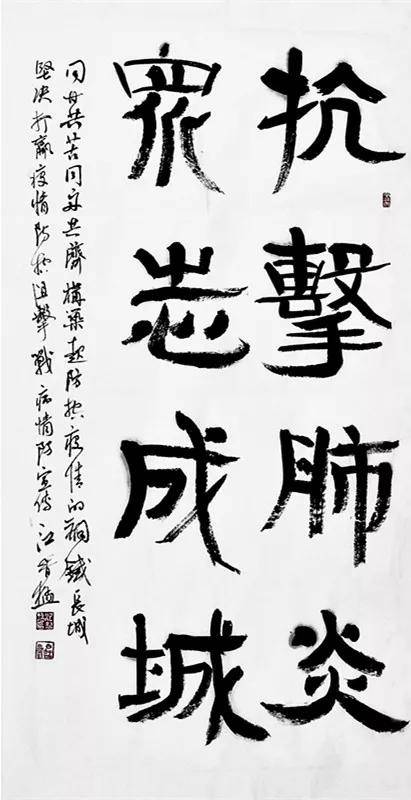 抗擊肺炎
眾志成城
同甘共苦同舟共濟構築起防控疫情的鋼鐵長城
堅決打贏疫情防控阻擊戰 防宣傳 江